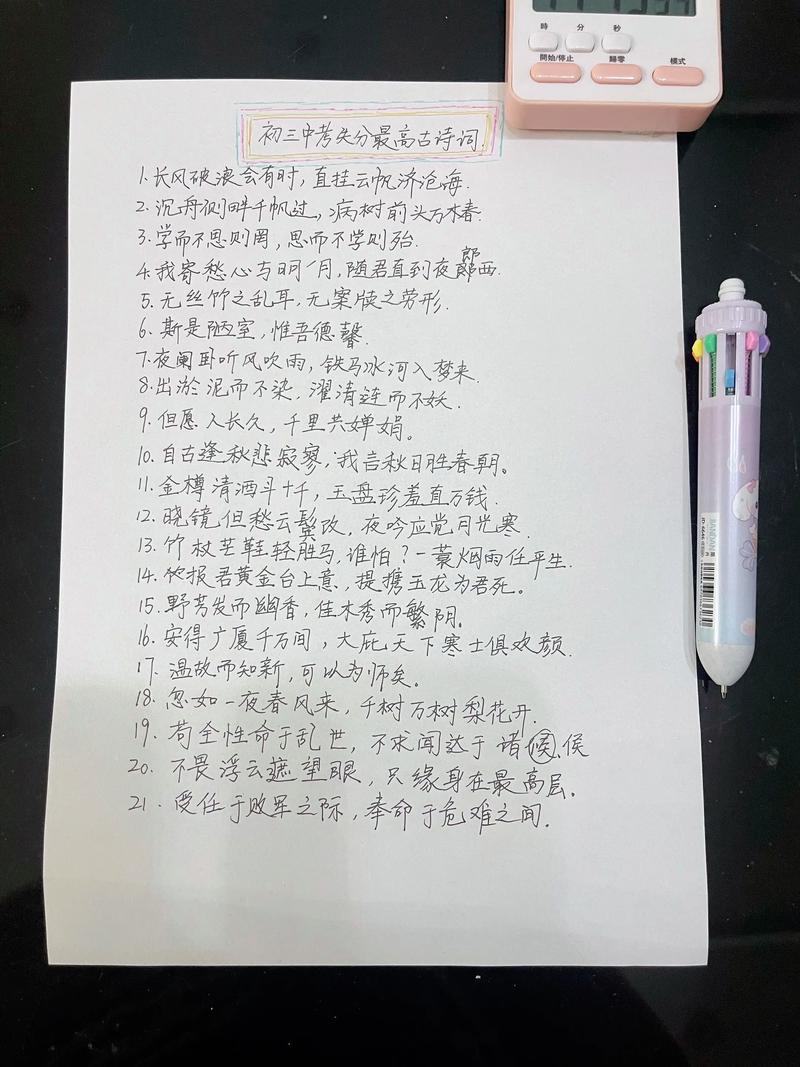 時 分 秒
開始/停止 歸零 模式
初三中考失分最高古诗词.
1.长风破浪会有时，直挂云帆济沧海.
2.沉舟侧畔千帆过，病树前头万木春.
3.学而不思则罔，思而不学则殆.
郎
4.我寄愁心与明月，随君直到夜郎西.
5.无丝竹之乱耳，无案牍之劳形.
6.斯是陋室，惟吾德馨.
7.夜阑卧听风吹雨，铁马冰河入梦来.
8.出淤泥而不染，濯清涟而不妖.
9.但愿人长久，千里共婵娟。
10.自古逢秋悲寂寥，我言秋日胜春朝。
11.金樽清酒斗十千，玉盘珍羞直万钱.
12.晓镜但愁云鬓改，夜吟应觉月光寒.
13.竹杖芒鞋轻胜马，谁怕？一蓑烟雨任平生.
14.报君黄金台上意，提携玉龙为君死。
15.野芳发而幽香，佳木秀而繁阴。
16.安得广厦千万间，大庇天下寒士俱欢颜.
17.温故而知新，可以为师矣。
18.忽如一夜春风来，千树万树梨花开.
19.苟全性命于乱世，不求闻达于诸候.侯
20.不畏浮云遮望眼，只缘身在最高层。
21.受任于败军之际，奉命于危难之间.